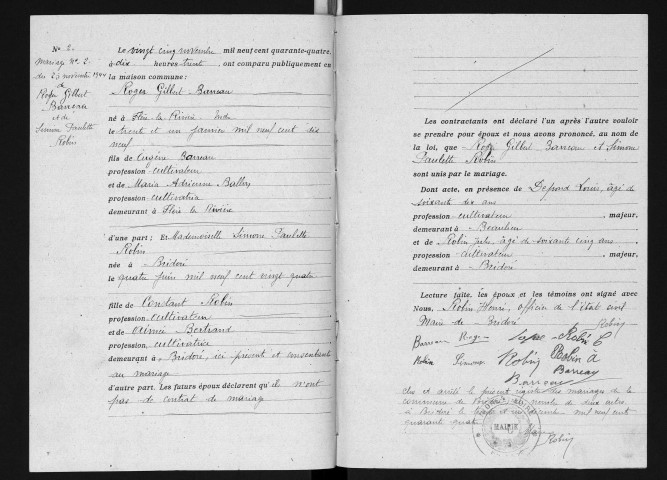 No 2.
Mariage No 2
du 25 novembre 1944
de
Roger Gilbert
Barreau
et de
Simone Paulette
Robin
Le vingt cinq novembre mil neuf cent quarante-quatre,
à dix heures trente, ont comparu publiquement en
la maison commune:
Roger Gilbert Barreau
né à Fléré la Rivière Indre
le trente et un janvier mil neuf cent dix
neuf
fils de Eugène Barreau
profession cultivateur
et de Maria Adrienne
profession cultivatrice
demeurant à Fléré la Rivière
d'une part; et Mademoiselle Simone Paulette
Robin
née à Bridoré
le quatre juin mil neuf cent vingt quatre
fille de Constant Robin
profession cultivateur
et de Aimée Bertrand
profession cultivatrice
demeurant à Bridoré, ici présents et consentant
au mariage
d'autre part. Les futurs époux déclarent qu'il n'ont
pas de contrat de mariage
Les contractants ont déclaré l'un après l'autre vouloir
se prendre pour époux et nous avons prononcé, au nom de
la loi, que Roger Gilbert Barreau et Simone
Paulette Robin
sont unis par le mariage.
Dont acte, en présence de Louis, âgé de
soixante dix ans
profession cultivateur, majeur,
demeurant à Beaulieu
et de Robin, âgé de soixante cinq ans
profession cultivateur, majeur,
demeurant à Bridoré
Lecture faite, les époux et les témoins ont signé avec
Nous, Robin Henri, officier de l'état civil
Maire de Bridoré Robin
Barreau Roger Robin C
Robin Simone Robin Robin A
Barreau
Barreau
Clos et arrêté le présent registre des mariages de la
commune de Bridoré au nombre de deux actes
à Bridoré le trente et un décembre mil neuf cent
quarante quatre
MAIRIE
Robin